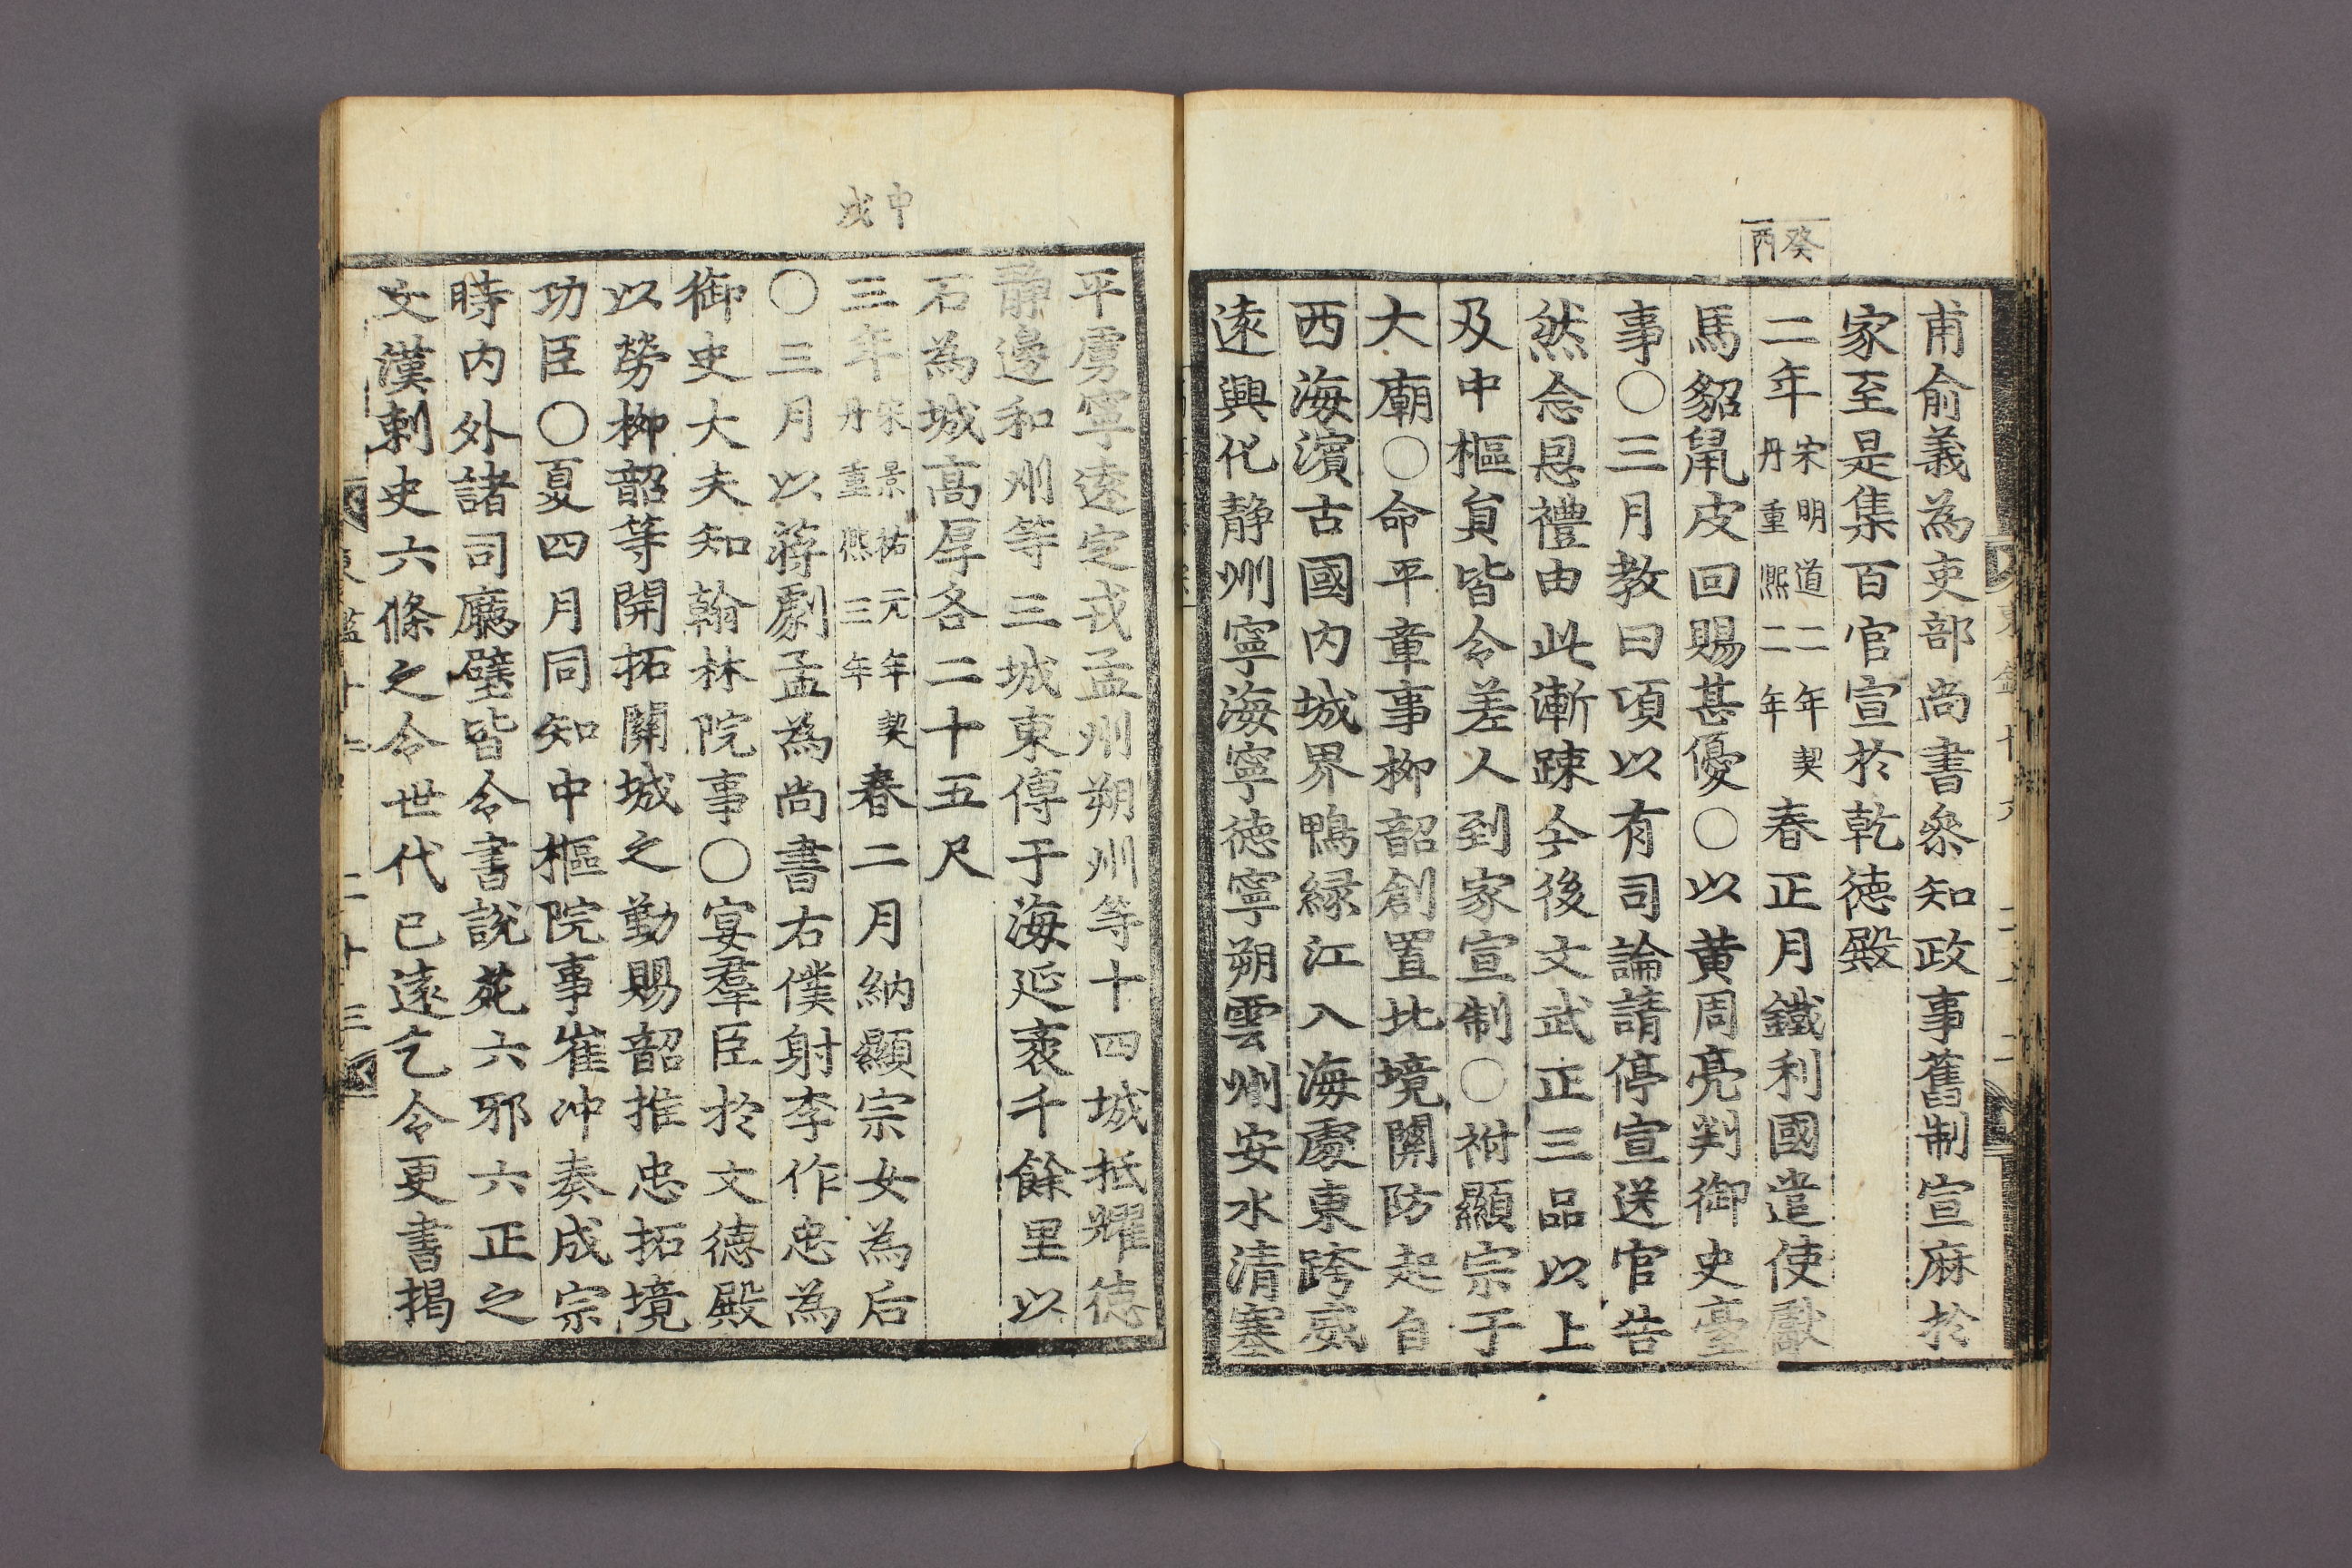 癸酉
甫俞義為吏部尚書叅知政事舊制宣麻於
家至是集百官宣於乾德殿
二年宋明道二年契丹重熈二年春正月鐵利國遣使獻
馬貂鼠皮回賜甚優○以黄周亮判御史臺
事○三月教曰項以有司論請停宣送官告
然念恩禮由此漸踈今後文武正三品以上
及中樞貟皆令差人到家宣制○祔顯宗于
大廟○命平章事柳韶創置北境關防起自
西海濵古國內城界鴨緑江入海處東跨威
逺興化静州寧海寧德寧朔雲州安水清塞
平虜寧逺定戎孟州朔州等十四城抵耀德
静邊和州等三城東傅于海延袤千餘里以
石為城高厚各二十五尺
甲戌
三年宋景祐元年契丹重熈三年春二月納顯宗女為后
○三月以蔣劇孟為尚書右僕射李作忠為
御史大夫知翰林院事○宴羣臣於文德殿
以勞柳韶等開拓關城之勤賜韶推忠拓境
功臣○夏四月同知中樞院事崔冲奏成宗
時內外諸司廳壁皆令書說苑六邪六正之
文漢刺史六條之令世代已逺乞令更書揭